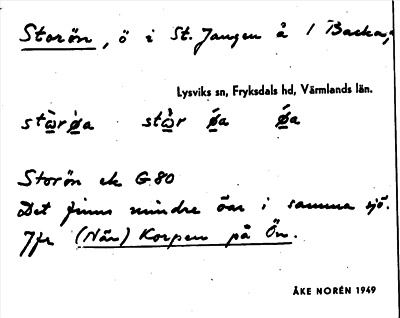 Storön, ö i St. Jangen å 1 Backa,
Lysviks sn, Fryksdals hd, Värmlands län.
Storön ek G80
Det finns mindre öar i samma sjö.
Jfr (När) Korpen på Ön.
ÅKE NORÉN 1949